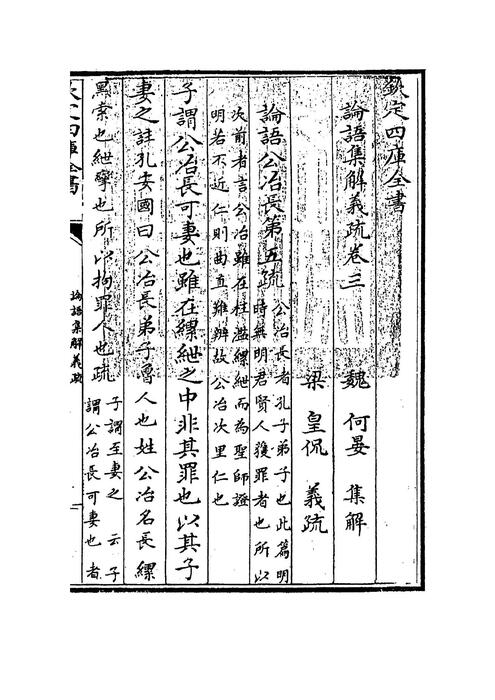 欽定四庫全書
論語集解義疏卷三　魏　何晏　集解
梁　皇侃　義疏
論語公冶長第五疏
公冶長者孔子弟子也此篇明
時無明君賢人獲罪者也所以
次前者言公冶雖在枉濫縲絏而為聖師證
明若不近仁則曲直難辨故公冶次里仁也
子謂公冶長可妻也雖在縲絏之中非其罪也以其子
妻之註孔安國曰公冶長弟子魯人也姓公冶名長縲
黑索也絏攣也所以拘罪人也疏
子謂至妻之　云子
謂公冶長可妻也者
四庫全書
論語集解義疏